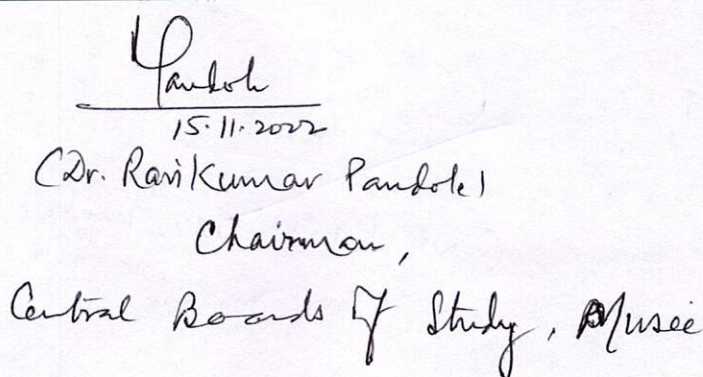 Pandole
15.11.2022
(Dr. Ravikumar Pandole)
Chairman,
Central Boards of Study, Music